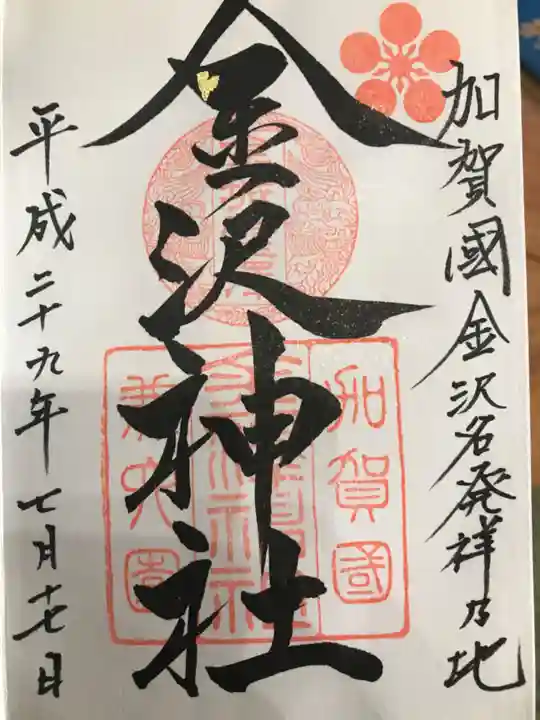 加賀國金沢名発祥乃地
金沢神社
平成二十九年七月十七日
加賀國
兼六園